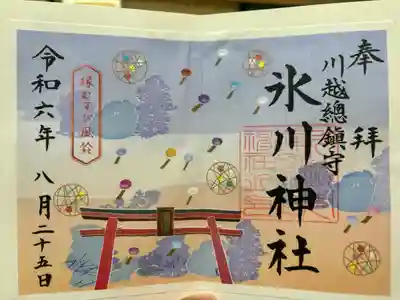 奉拝
川越總鎮守
氷川神社
縁むすび風鈴
令和六年 八月二十五日